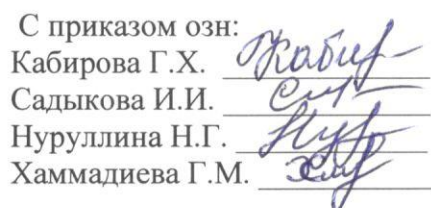 С приказом озн:
Кабирова Г.Х.
Садыкова И.И.
Нуруллина Н.Г.
Хаммадиева Г.М.